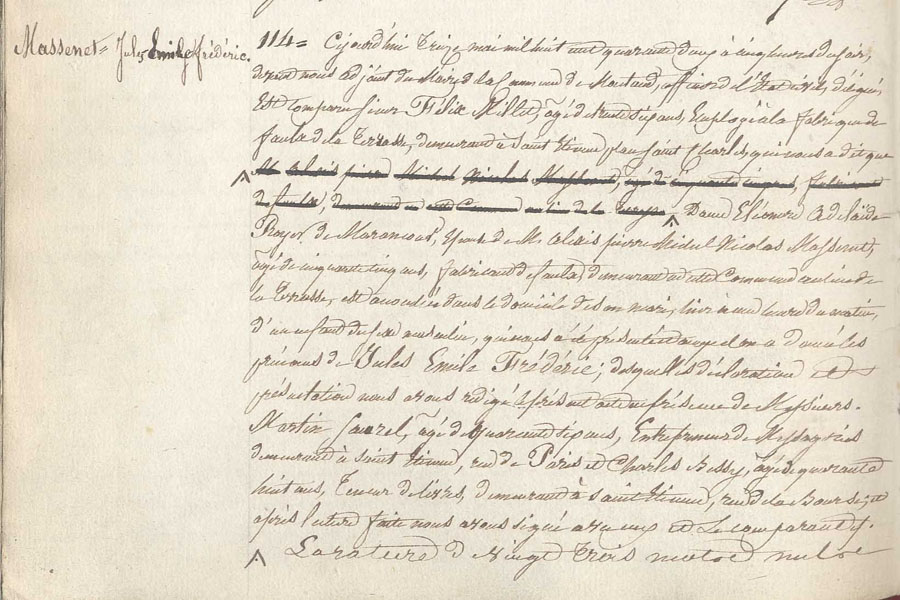 Massenet = Jules Emile Frédéric.
114 = Cejourd'hui treize mai mil huit cent quarante deux à cinq heures du soir,
devant nous adjoint du Maire de la Commune de Montaud, officier de l'Etat civil, délégué,
Est comparu sieur Félix Millet, agé de trente sept ans, Employé à la fabrique de
faulx de la Terrasse, demeurant à Saint Etienne place Saint Charles, qui nous a dit que
M. Alexis pierre Michel Nicolas Massenet, agé de cinquante cinq ans, fabricant
de faulx, demeurant en cette Commune au lieu de la Terrasse Dame Eléonore Adelaïde
Royer de Marancour, Epouse de M. Alexis pierre Michel Nicolas Massenet,
agé de cinquante cinq ans, fabricant de faulx, demeurant en cette Commune au lieu de
la Terrasse, est accouchée dans le domicile de son mari, hier à une heure du matin,
d'un enfant du sexe masculin, qui nous a été présenté et auquel on a donné les
prénoms de Jules Emile Frédéric; desquelles déclaration et
présentation nous avons rédigé le présent acte en présence de Messieurs.
Martin Saurel, agé de quarante sept ans, Entrepreneur de Messageries
demeurant à Saint Etienne, rue de Paris et Charles Bessy, agé de quarante
huit ans, Teneur de livres, demeurant à Saint Etienne, rue de la Bourse; et
après lecture faite nous avons signé avec eux et le comparant.
La rature de vingt trois mots nulle